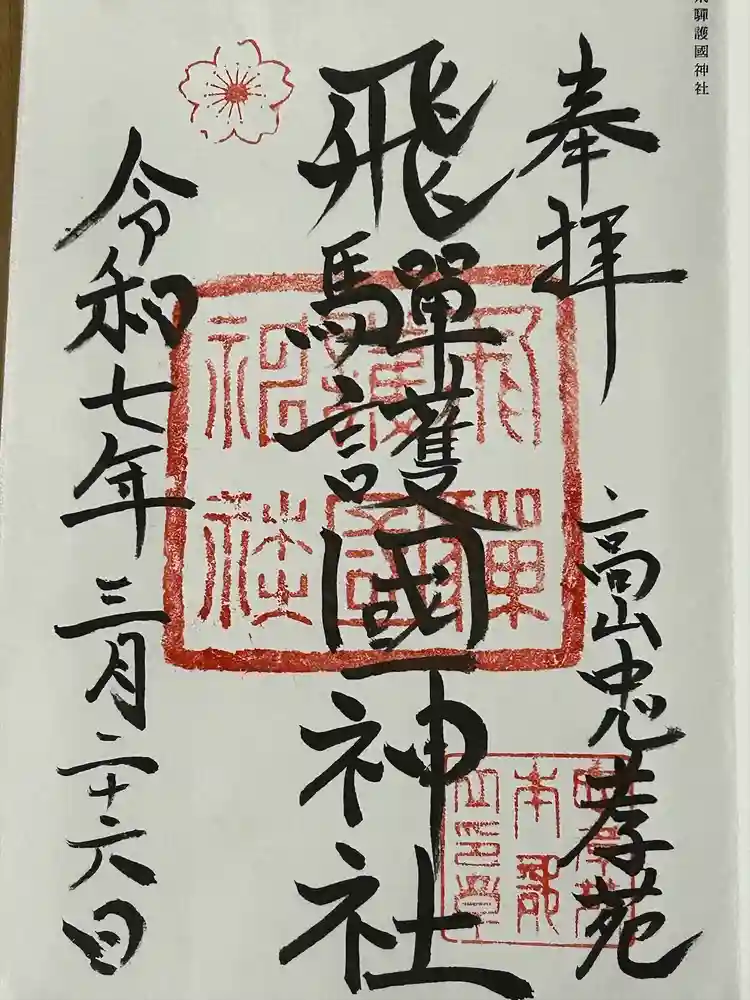 飛驒護國神社
奉拝
高山忠孝苑
飛驒護國神社
令和七年三月二十六日
飛驒
護國
神社
本部